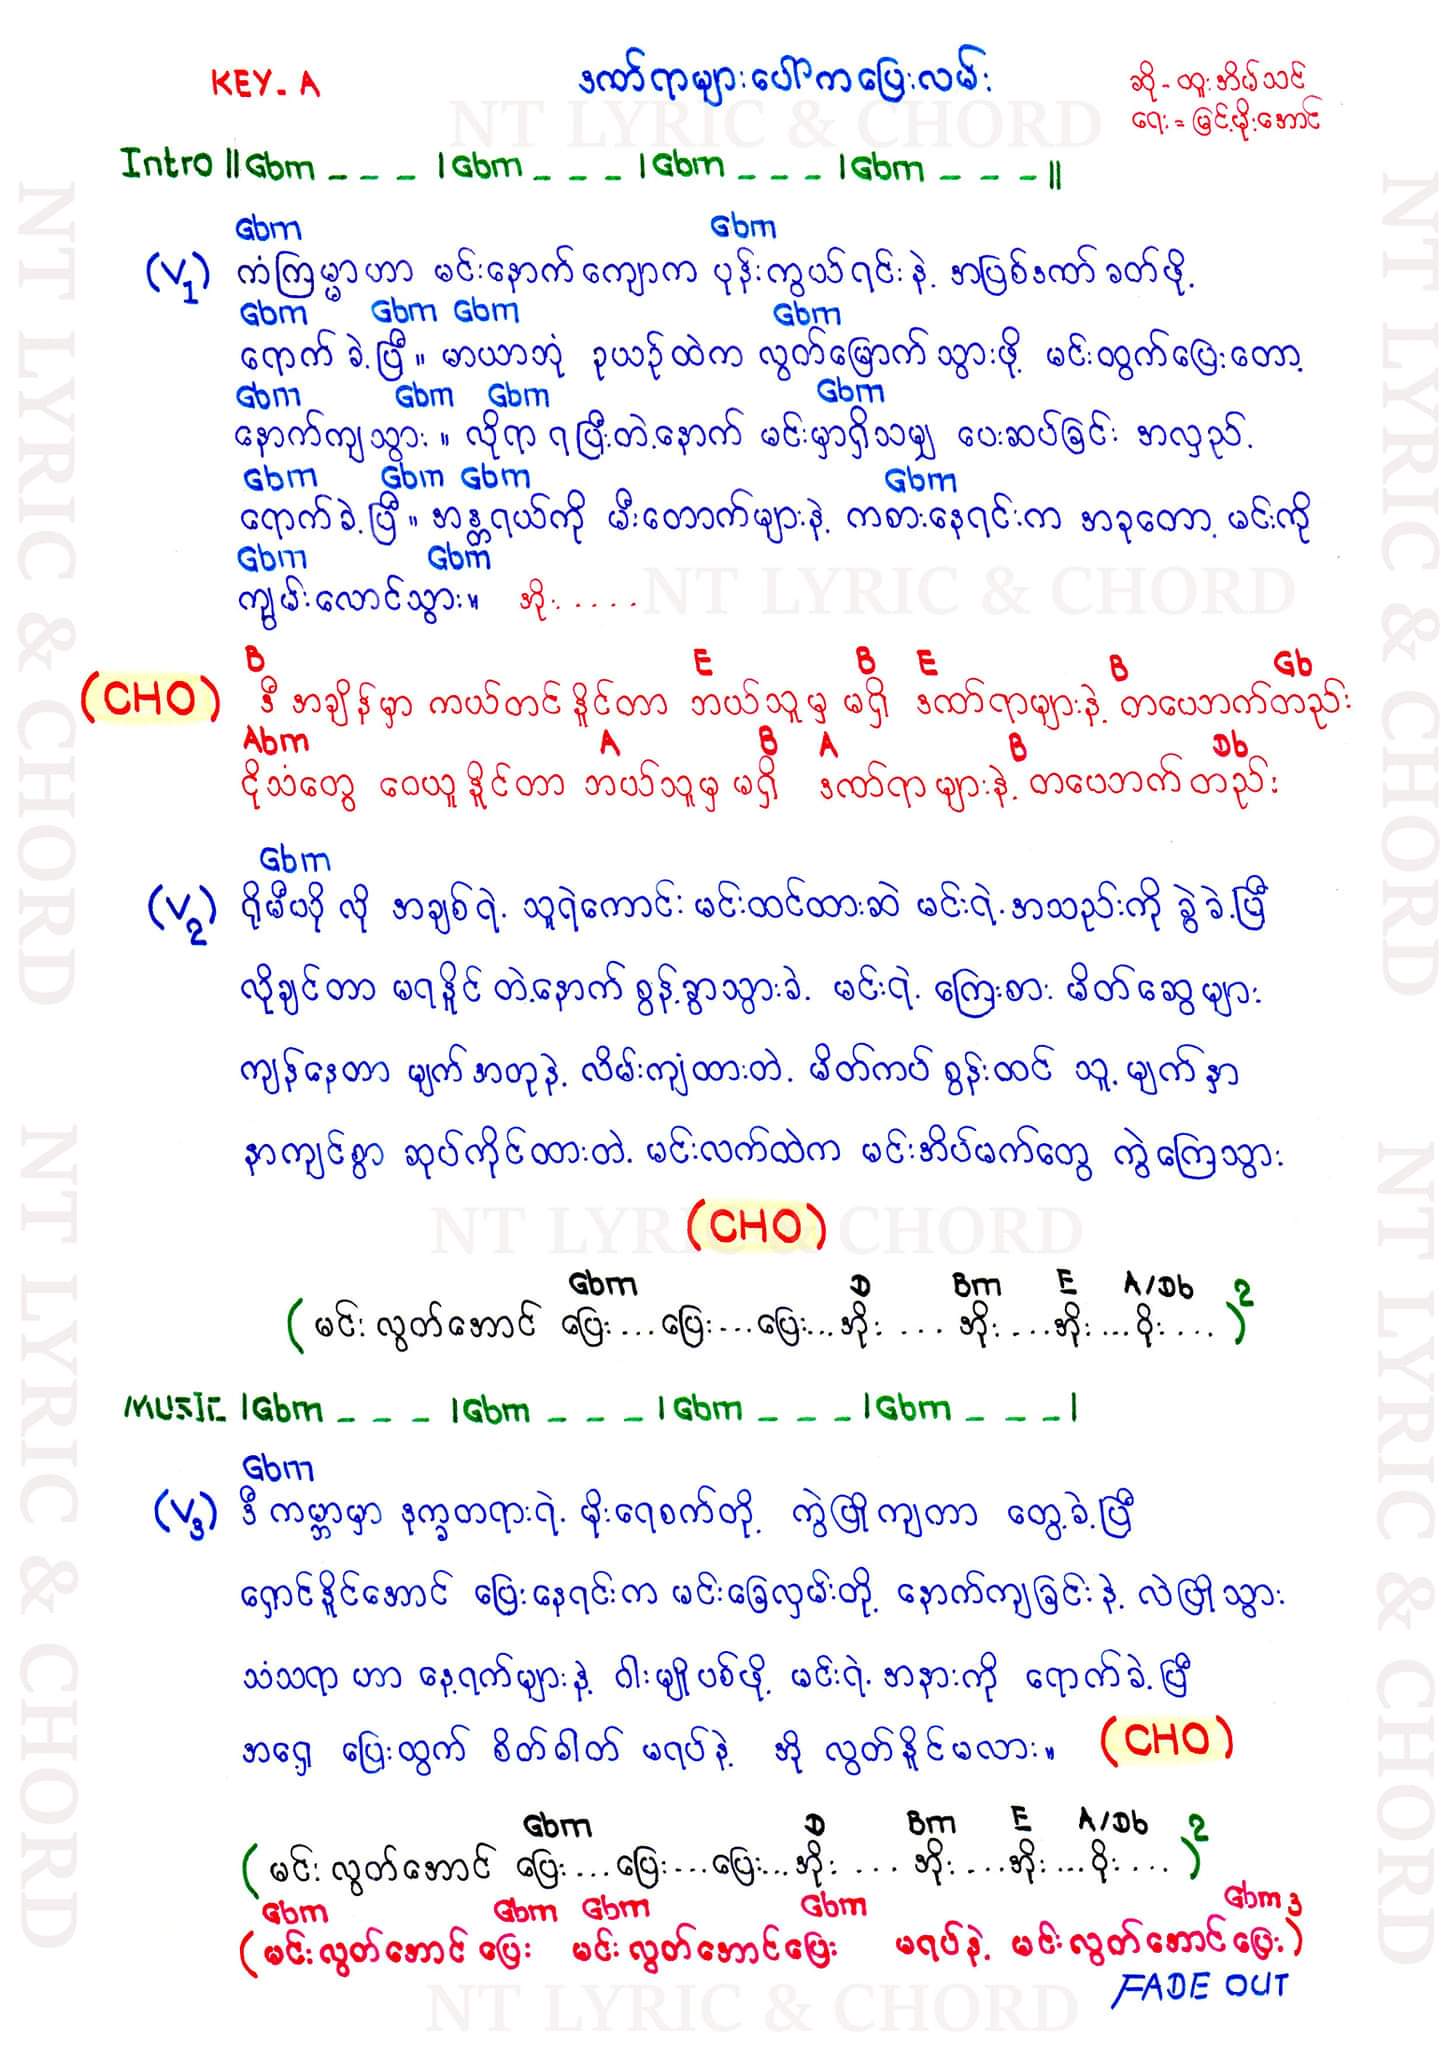 KEY-A
ဒဏ်ရာများပေါ်ကပြေးလမ်း
ဆို - ထူးအိမ်သင်
ရေး = မြင့်မိုးအောင်
Intro ||Gbm _ _ _ |Gbm _ _ _ |Gbm _ _ _ |Gbm _ _ _ ||
Gbm Gbm
(V1) ကံကြမ္မာဟာ မင်းနောက်ကျောက ပုန်းကွယ်ရင်းနဲ့ အပြစ်ဒဏ်ခတ်ဖို့
Gbm Gbm Gbm Gbm
ရောက်ခဲ့ပြီ။ မာယာဘုံ ဥယျာဉ်ထဲက လွတ်မြောက်သွားဖို့ မင်းထွက်ပြေးတော့
Gbm Gbm Gbm Gbm
နောက်ကျသွား။ လိုရာရပြီးတဲ့နောက် မင်းမှာရှိသမျှ ပေးဆပ်ခြင်း အလှည့်
Gbm Gbm Gbm Gbm
ရောက်ခဲ့ပြီ။ အန္တရယ်ကို မီးတောက်များနဲ့ ကစားနေရင်းက အခုတော့ မင်းကို
Gbm Gbm
ကျွမ်းလောင်သွား။ အိုး.....
B E B E B Gb
(CHO) ဒီအချိန်မှာ ကယ်တင်နိူင်တာ ဘယ်သူမှ မရှိ ဒဏ်ရာများနဲ့ တပေဘက်တည်း
Abm A B A B Db
ငိုသံတွေ ဝေယူနိူင်တာ ဘယ်သူမှ မရှိ ဒဏ်ရာများနဲ့ တပေဘက်တည်း
Gbm
(V2) ရိုမီပဒိုလို အချစ်ရဲ့ သူရဲကောင်း မင်းထင်ထားဆဲ မင်းရဲ့အသည်းကို ခွဲခဲ့ပြီ
လိုချင်တာ မရနိူင်တဲ့နောက် စွန့်ခွာသွားခဲ့ မင်းရဲ့ ကြေးစား မိတ်ဆွေများ
ကျန်နေတာ မျက်အတုနဲ့ လိမ်းကျံထားတဲ့ မိတ်ကပ် စွန်းထင် သူ့မျက်နှာ
နာကျင်စွာ ဆုပ်ကိုင်ထားတဲ့ မင်းလက်ထဲက မင်းအိပ်မက်တွေ ကွဲကြေသွား
(CHO)
Gbm D Bm E A/Db
(မင်းလွတ်အောင် ပြေး...ပြေး...ပြေး...အိုး... အိုး...အိုး...ဝိုး...)2
MUSIC |Gbm _ _ _ |Gbm _ _ _ |Gbm _ _ _ |Gbm _ _ _|
Gbm
(V3) ဒီကမ္ဘာမှာ နက္ခတရားရဲ့ မိုးရေစက်တို့ ကွဲပြိုကျကာ တွေ့ခဲ့ပြီ
ရှောင်နိူင်အောင် ပြေးနေရင်းက မင်းခြေလှမ်းတို့ နောက်ကျခြင်းနဲ့ လဲပြိုသွား
သံသရာဟာ နေ့ရက်များနဲ့ ဝါးမျိုပစ်ဖို့ မင်းရဲ့အနားကို ရောက်ခဲ့ပြီ
အရှေ့ ပြေးထွက် စိတ်ဓါတ် မရပ်နဲ့ အို လွတ်နိူင်မလား။ (CHO)
Gbm D Bm E A/Db
(မင်းလွတ်အောင် ပြေး...ပြေး...ပြေး...အိုး... အိုး...အိုး...ဝိုး...)2
Gbm Gbm Gbm Gbm Gbm 3
(မင်းလွတ်အောင် ပြေး မင်းလွတ်အောင်ပြေး မရပ်နဲ့ မင်းလွတ်အောင်ပြေး)
FADE OUT
NT LYRIC & CHORD
NT LYRIC & CHORD
NT LYRIC & CHORD
NT LYRIC & CHORD
NT LYRIC & CHORD
NT LYRIC & CHORD
NT LYRIC & CHORD
NT LYRIC & CHORD